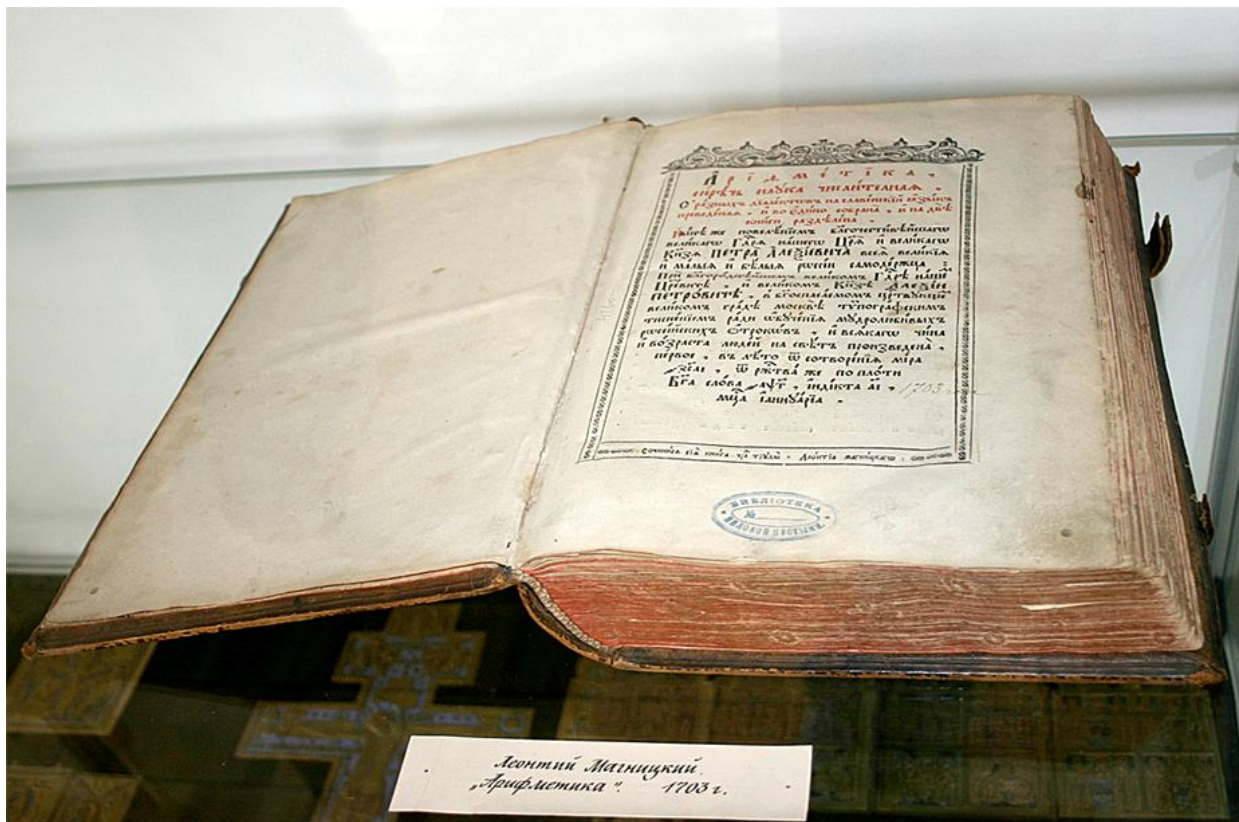 А҆ріѳме́тїка,
сирѣчь наука числителная.
Ѿ разныхъ дїалектѡвъ на славенскїй ѧзыкъ
преведеная, и во едино собрана, и на двѣ
книги раздѣлена.
Нн҃ѣ же повелѣнїемъ бл҃гочестивѣйшагѡ
великагѡ Гдⷭ҇рѧ нашегѡ Цр҃ѧ и великагѡ
Кн҃зѧ ПЕТРА АЛЕѮІЕВИЧА всеѧ великїѧ
и малыѧ и бѣлыѧ рѡссїи самодержца:
При бл҃городнѣйшемъ великомъ Гдⷭ҇рѣ нашемъ
Цр҃евичѣ, и великомъ Кн҃зѣ АЛЕѮІИ
ПЕТРОВИЧѢ, в бг҃оспасаемомъ црⷭ҇твующемъ
великомъ градѣ москвѣ тѵпографскимъ
тисненїемъ ради ѡбученїѧ мудролюбивыхъ
рѡссїйскихъ ѻтрокѡвъ, и всѧкагѡ чина
и возраста людей на свѣтъ произведена,
первое, въ лѣто ѿ сотворенїѧ мїра
҂зс҃аі, ѿ ржⷭ҇тва же по плоти
Бг҃а слова ҂аѱ҃г, індікта аі, 1703
мцⷭ҇а іаннуарїа.
Сочинисѧ сїѧ книга чрез труды Леонтїѧ Магницкагѡ.
БИБЛІОТЕКА
№
Леонтий Магницкий.
„Арифметика". 1703 г.